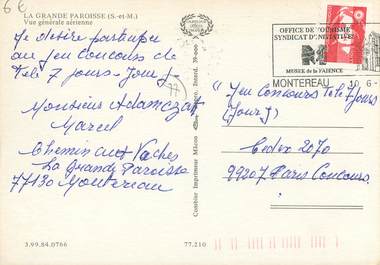 6€
LA GRANDE PAROISSE (S.-et-M.)
Vue générale aérienne
Je désire participer
au Jeu concours de
Télé 7 jours - Jour J
77
Monsieur Adamczak
Marcel
Chemin aux Vaches
La Grande Paroisse
77130 Montereau
3.99.84.0766
77.210
Combier Imprimeur Mâcon
OFFICE DE TOURISME
SYNDICAT D'INITIATIVE
MUSEE de la FAIENCE
MONTEREAU 10-6-
"Jeu Concours Télé 7 Jours
(Jour J)
Cedex 2070
99207 Paris Concours